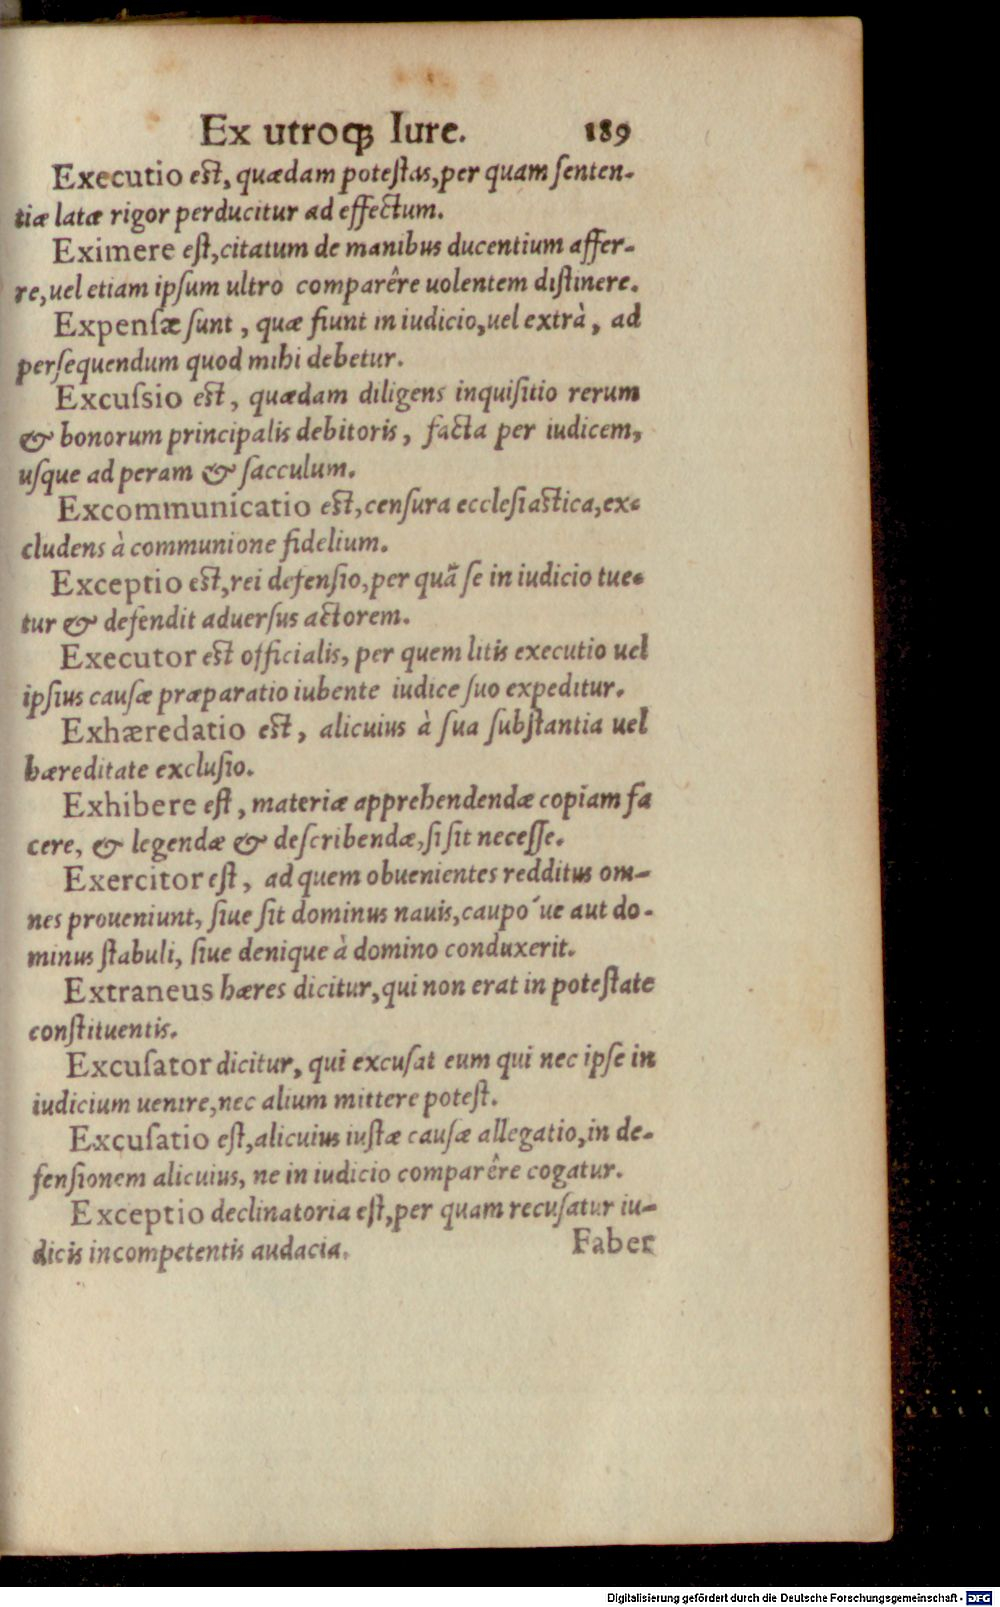 Ex utroqꝫ Iure. 189
Executio est, quædam potestas, per quam senten-
tiæ latæ rigor perducitur ad effectum.
Eximere est, citatum de manibus ducentium affer-
re, uel etiam ipsum ultro comparêre uolentem distinere.
Expensæ sunt, quæ fiunt in iudicio, uel extrà, ad
persequendum quod mihi debetur.
Excussio est, quædam diligens inquisitio rerum
& bonorum principalis debitoris, facta per iudicem,
usque ad peram & sacculum.
Excommunicatio est, censura ecclesiastica, ex-
cludens à communione fidelium.
Exceptio est, rei defensio, per quã se in iudicio tue-
tur & defendit aduersus actorem.
Executor est officialis, per quem litis executio uel
ipsius causæ præparatio iubente iudice suo expeditur.
Exhæredatio est, alicuius à sua substantia uel
hæreditate exclusio.
Exhibere est, materiæ apprehendendæ copiam fa
cere, & legendæ & describendæ, si sit necesse.
Exercitor est, ad quem obuenientes redditus om-
nes proueniunt, siue sit dominus nauis, caupo´ue aut do-
minus stabuli, siue denique à domino conduxerit.
Extraneus hæres dicitur, qui non erat in potestate
constituentis.
Excusator dicitur, qui excusat eum qui nec ipse in
iudicium uenire, nec alium mittere potest.
Excusatio est, alicuius iustæ causæ allegatio, in de-
fensionem alicuius, ne in iudicio comparêre cogatur.
Exceptio declinatoria est, per quam recusatur iu-
dicis incompetentis audacia.
Faber
Digitalisierung gefördert durch die Deutsche Forschungsgemeinschaft - DFG